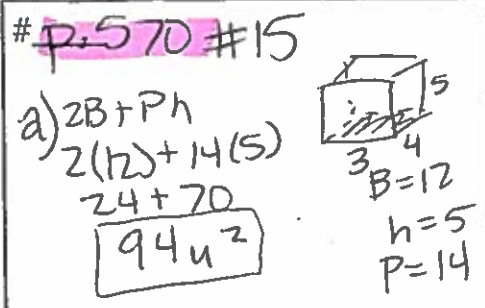 # p. 570 #15
a) 2B + Ph
2(12) + 14(5)
24 + 70
94u²
5
3
4
B = 12
h = 5
P = 14